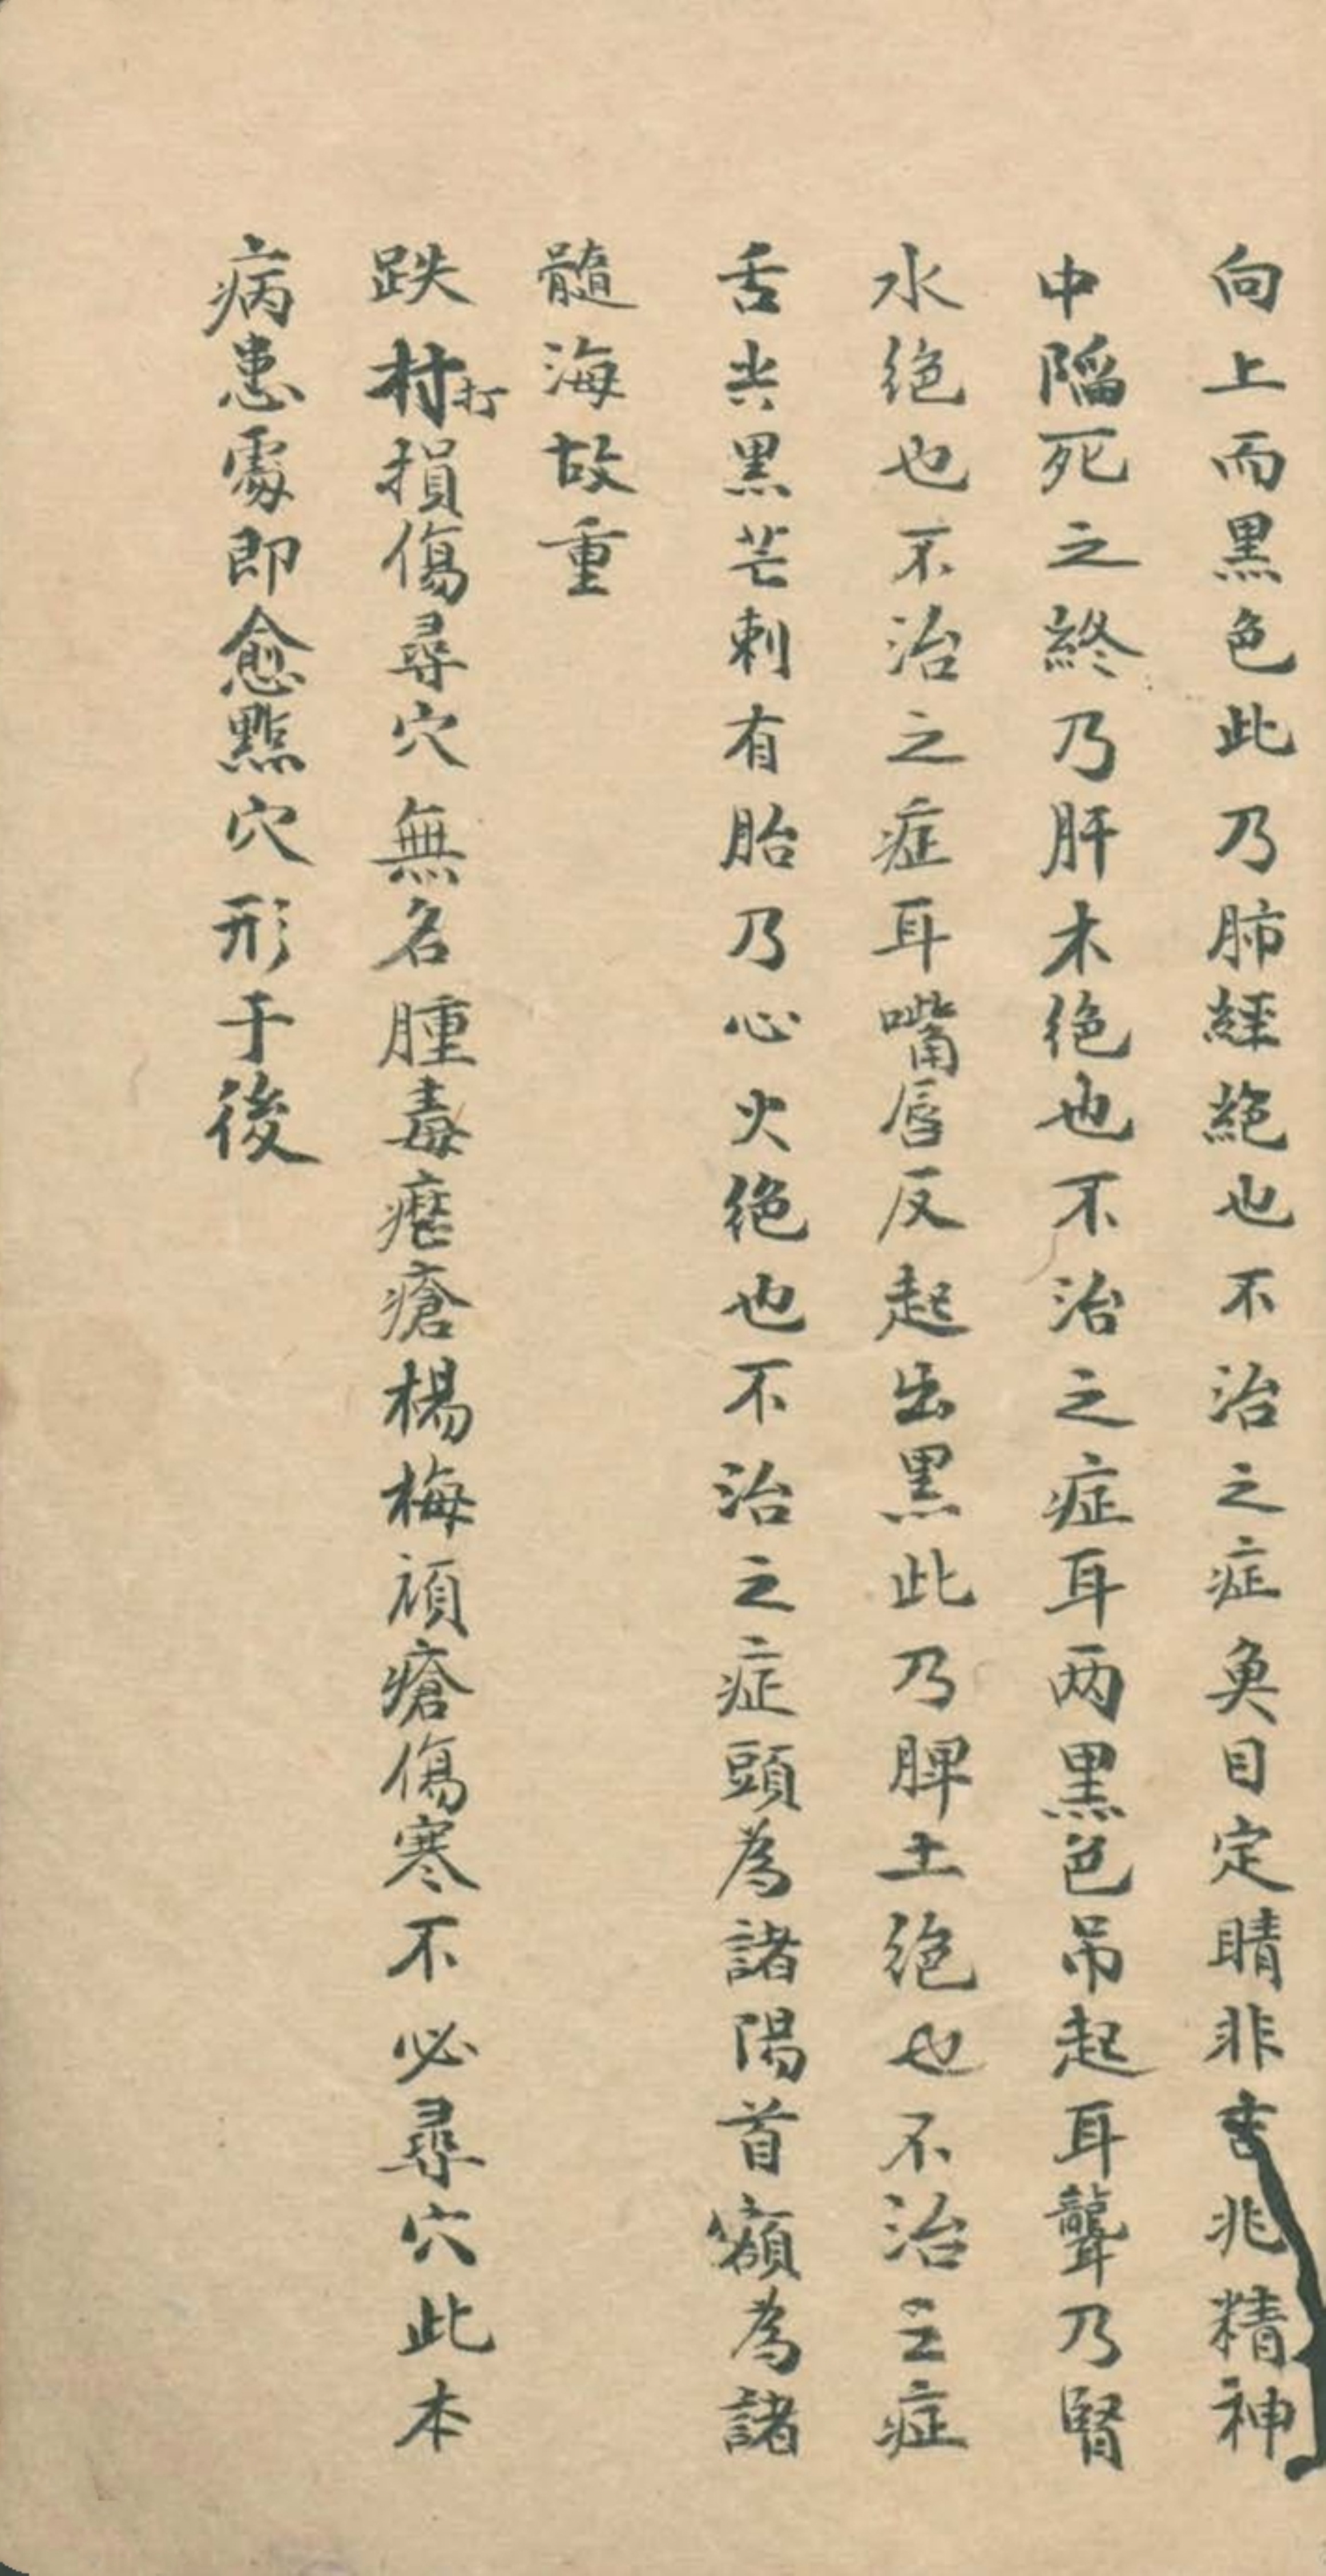 向上而黑色此乃肺經絕也不治之症魚目定睛非吉兆精神
中陷死之終乃肝木絕也不治之症耳两黑色吊起耳聾乃腎
水絕也不治之症耳嘴唇反起出黑此乃脾土絕也不治之症
舌尖黑芒刺有胎乃心火絕也不治之症頭為諸陽首額為諸
髓海故重
跌打損傷尋穴無名腫毒瘟瘡楊梅頑瘡傷寒不必尋穴此本
病患處即愈點穴形于後